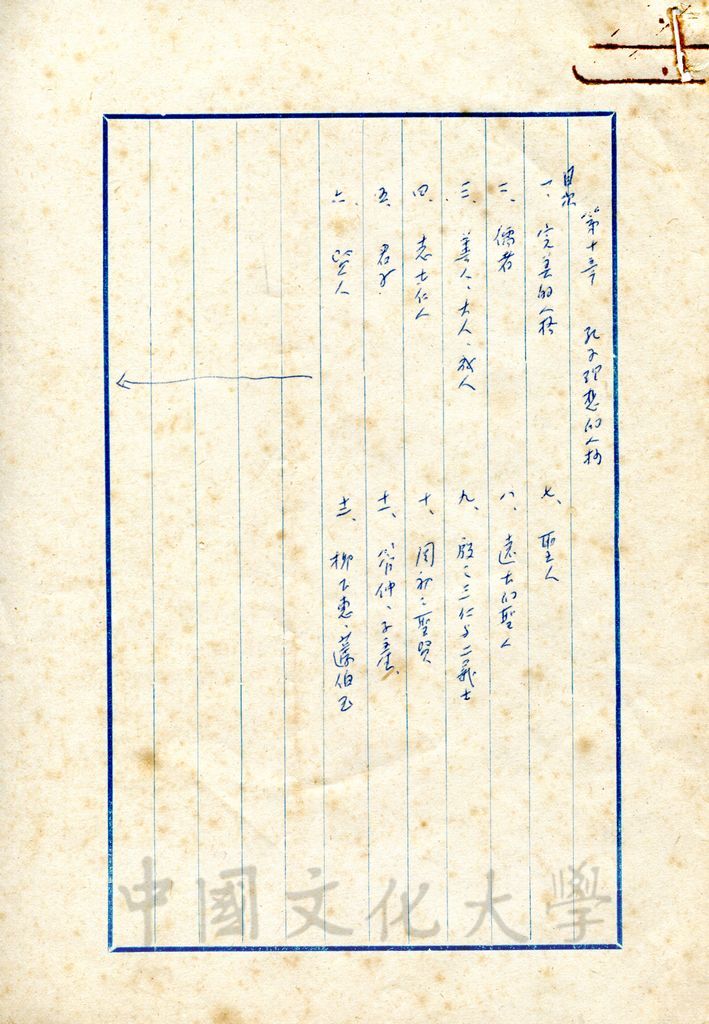 第十章 孔子理想的人格
目次
一、完美的人格
二、儒者
三、善人、大人、成人
四、志士仁人
五、君子
六、賢人
七、聖人
八、遠古的聖人
九、殷之三仁与二義士
十、周初之聖賢
十一、管仲、子產
十二、柳下惠、蘧伯玉
中國文化大學